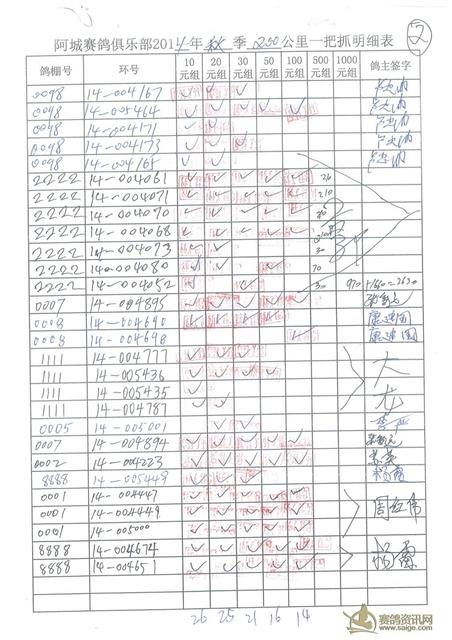 ②
阿城赛鸽俱乐部2014年秋季250公里一把抓明细表
鸽棚号 环号 10元组 20元组 30元组 50元组 100元组 500元组 1000元组 鸽主签字
0098 14-004167 ✓ ✓ ✓
0098 14-005464 ✓ ✓ ✓ ✓ ✓
0098 14-004171 ✓ ✓
0098 14-004173 ✓ ✓ ✓
0098 14-004165 ✓ ✓
2222 14-004061 ✓ ✓ ✓ ✓ ✓
2222 14-004071 ✓ ✓ ✓ ✓ ✓ 210
2222 14-004070 ✓ ✓ ✓ ✓ ✓
2222 14-004068 ✓ ✓ ✓ ✓ ✓
2222 14-004073 ✓ ✓ 30
2222 14-004080 ✓ ✓ 70
2222 14-004052 ✓ ✓ 30 970
0007 14-004895 ✓ ✓ ✓ ✓
0008 14-004690 ✓ ✓ ✓ ✓ 康建国
0008 14-004698 ✓ 康建国
1111 14-004777 ✓ ✓ ✓
1111 14-005436 ✓ ✓ ✓ ✓
1111 14-005435 ✓ ✓
1111 14-004787 ✓ ✓
0005 14-005001 ✓ ✓
0007 14-004894 ✓ ✓ ✓ ✓ ✓
0002 14-004223 ✓ ✓ ✓ ✓
8888 14-005449 ✓ ✓ ✓
0001 14-004447 ✓ ✓ ✓ ✓ ✓
0001 14-004449 ✓ ✓ ✓ ✓ ✓ 周红伟
0001 14-005000 ✓ ✓ ✓ ✓ ✓
8888 14-004674 ✓ ✓ ✓ ✓ ✓
8888 14-004651 ✓ ✓ ✓ ✓ ✓
26 25 21 16 14
赛鸽资讯网
www.saige.com